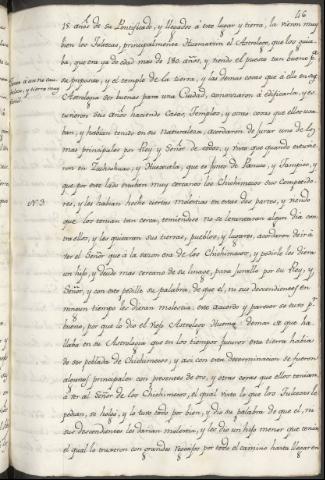 46
18 años de su Pontificado, y llegados á este lugar y tierra, la vieron muy
bien los Tultecas, principalmente Huemantzin el Astrologo, que los guia-
ba, que era ya de edad mas de 180 años, y viendo el puesto tan bueno p.a
su proposito, y el temple de la tierra, y las demas cosas que á ella en su
Astrologia ser buenas para una Ciudad, comenzaron á edificarla, y es-
tuvieron seis años haciendo Casas, Templos, y otras cosas que ellos usa-
ban, y habian tenido en su naturaleza, acordaron de jurar uno de los
mas principales por Rey y Señor de todos, y visto que quando estuvie-
ron en y Huexutla, que es junto de Panuco, y Tampico, y
que por este lado estaban muy cercanos los Chichimecos sus Competido-
res, y les habian hecho ciertas molestias en estas dos partes, y viendo
que los tenian tan cerca, temiendo no se levantasen algun dia con-
tra ellos, y les quitaran sus tierras, pueblos, y lugares, acordaron de ir á
ver al Señor que á la sazon era de los Chichimecos, y pedirle les diera
un hijo, ó deudo mas cercano de su linage, para jurallo por su Rey, y
Señor, y con esto pedille su palabra, de que el, ni sus descendientes en
ningun tiempo les dieran molestia: este acuerdo y parecer se tuvo p.r
bueno, por que lo dio el viejo Astrologo Huema.n demas de que ha-
llaba en su Astrologia que en los tiempos futuros esta tierra habia
de ser poblada de Chichimecos, y asi con esta determinacion se fueron
algunos principales con presentes de oro, y otras cosas que ellos tenian
á ver al Señor de los Chichimecos, el qual visto lo que los Tultecas le
pedian, se holgó, y lo tuvo todo por bien, y dio su palabra de que el, ni
sus descendientes les darian molestia, y les dio un hijo menor que tenia
el qual lo truxeron con grandes regocijos por todo el camino hasta llegar en
N.º 3